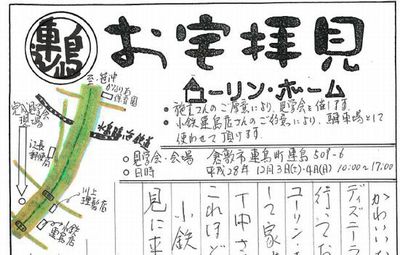 連島
お宅拝見
ローリン・ホーム
・施主さんのご厚意により、見学会を催します。
・小鉄連島店さんのご好意により、駐車場として
使わせて頂けます。
・見学会・会場 倉敷市連島町連島508-6
・日時 平成28年12月3日(土)・4日(日) 10:00~17:00
至.笹沖
保育園
水島臨海鉄道
完成見学会
現場
江長
川上
理髪店
小鉄
連島店
かわいいな
ディズニーラ
行ってお
ローリン・
って家
T中さ
これほど
小鉄
見に来